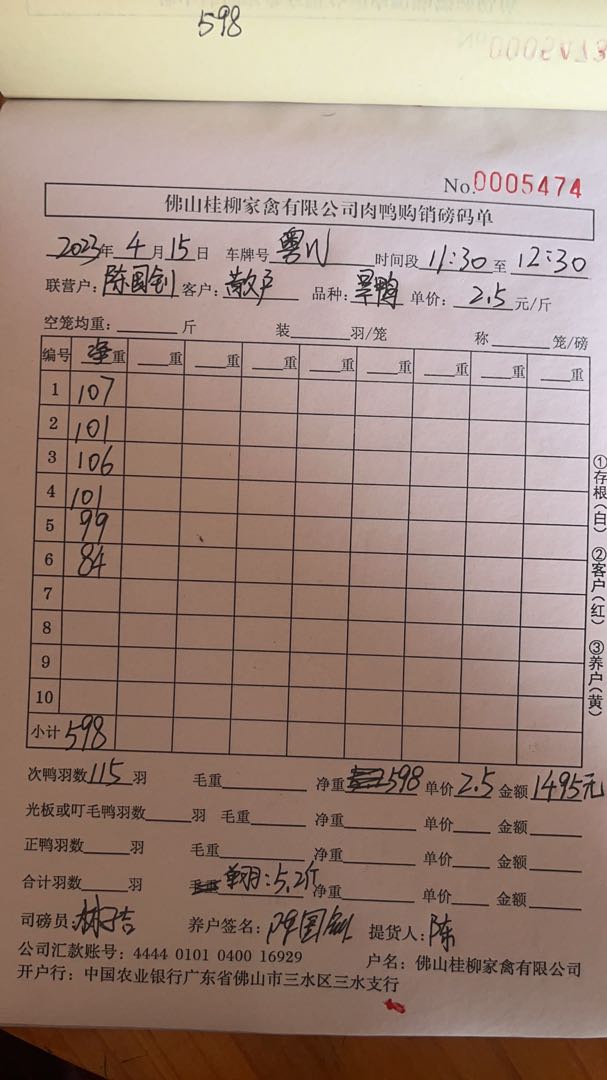 598
No.0005473
No.0005474
佛山桂柳家禽有限公司肉鸭购销磅码单
2023年4月15日 车牌号 粤 时间段 11:30 至 12:30
联营户：陈国钊 客户：散户 品种：旱鸭 单价：2.5元/斤
空笼均重：______斤 装______羽/笼 称______笼/磅
编号 净重 ___重 ___重 ___重 ___重 ___重 ___重 ___重 ___重
1 107
2 101
3 106
4 101
5 99
6 84
7
8
9
10
小计 598
①存根(白) ②客户(红) ③养户(黄)
次鸭羽数115羽 毛重______ 净重598 单价2.5 金额1495元
光板或叮毛鸭羽数____羽 毛重______ 净重______ 单价____ 金额____
正鸭羽数____羽 毛重______ 净重______ 单价____ 金额____
合计羽数____羽 单羽：5.2斤 净重______ 单价____ 金额____
司磅员：林子吉 养户签名：陈国钊 提货人：陈
公司汇款账号：4444 0101 0400 16929 户名：佛山桂柳家禽有限公司
开户行：中国农业银行广东省佛山市三水区三水支行